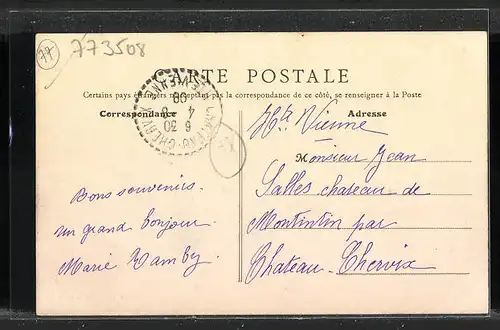 77
773508
CARTE POSTALE
Certains pays étrangers n'acceptant pas la correspondance de ce côté, se renseigner à la Poste
Correspondance
Adresse
Hte Vienne
Monsieur Jean
Salles chateau de
Montintin par
Chateau-Chervix
Bons souvenirs.
un grand bonjour
Marie
6 30
4 8
08